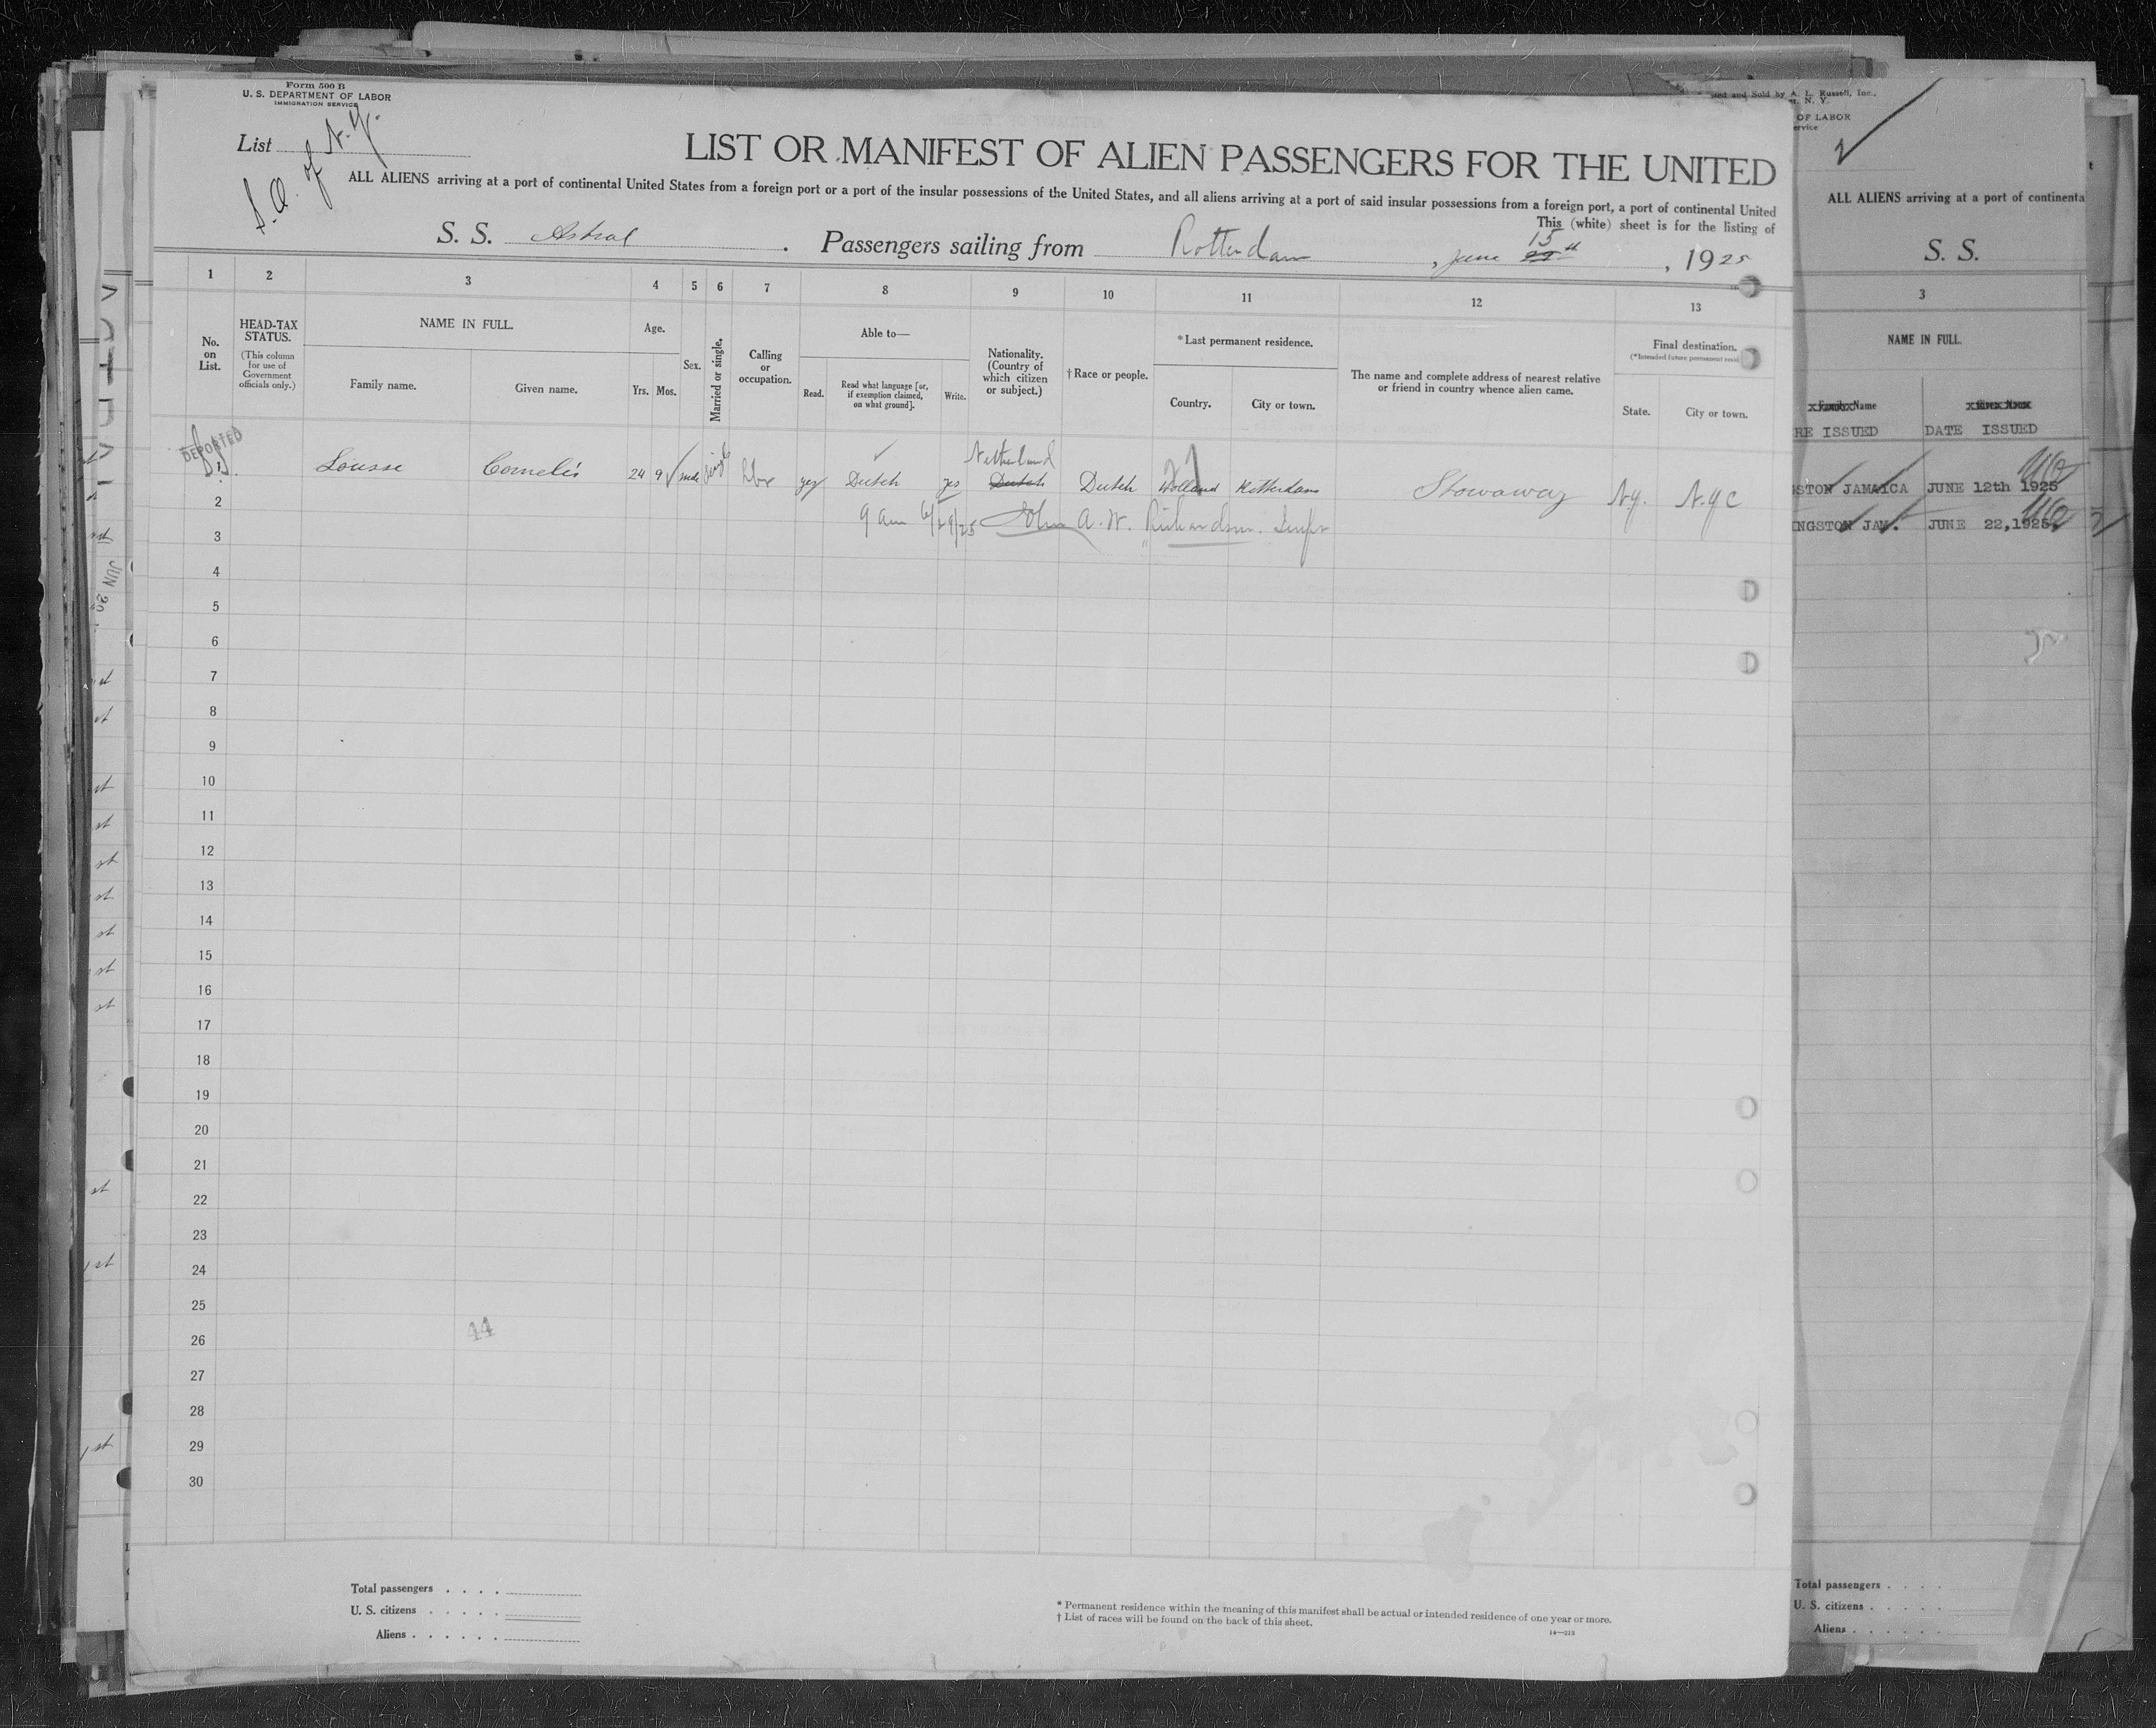 Form 500 B
U. S. DEPARTMENT OF LABOR
IMMIGRATION SERVICE
List
S.O. of N.Y.
LIST OR MANIFEST OF ALIEN PASSENGERS FOR THE UNITED
ALL ALIENS arriving at a port of continental United States from a foreign port or a port of the insular possessions of the United States, and all aliens arriving at a port of said insular possessions from a foreign port, a port of continental United
This (white) sheet is for the listing of
S. S. Astral . Passengers sailing from Rotterdam , June 15th , 1925
1 2 3 4 5 6 7 8 9 10 11 12 13
No. on List.
HEAD-TAX STATUS.
(This column for use of Government officials only.)
NAME IN FULL.
Family name. Given name.
Age.
Yrs. Mos.
Sex.
Married or single.
Calling or occupation.
Able to—
Read. Read what language [or, if exemption claimed, on what ground]. Write.
Nationality. (Country of which citizen or subject.)
†Race or people.
*Last permanent residence.
Country. City or town.
The name and complete address of nearest relative or friend in country whence alien came.
Final destination.
(*Intended future permanent resid
State. City or town.
DEPORTED
Netherland
1 Lousse Cornelis 24 9 male single yes Dutch yes Dutch Dutch Holland Rotterdam Stowaway N.Y. N.Y C
9 am 6/29/25 John A. W. Richardson. Inspr
2
3
4
5
6
7
8
9
10
11
12
13
14
15
16
17
18
19
20
21
22
23
24
25
26
27
28
29
30
44
Total passengers . . . .
U. S. citizens . . . . .
Aliens . . . . . .
* Permanent residence within the meaning of this manifest shall be actual or intended residence of one year or more.
† List of races will be found on the back of this sheet.
14—213
and Sold by A. L. Russell, Inc.,
N. Y.
OF LABOR
ervice
ALL ALIENS arriving at a port of continenta
S. S.
3
NAME IN FULL.
Family Name
RE ISSUED DATE ISSUED
GSTON JAMAICA JUNE 12th 1925
INGSTON JAM. JUNE 22,1925,
Total passengers . . . .
U. S. citizens . . . . .
Aliens . . . . . .
JUN 29
st
st
st
st
st
st
st
st
st
st
st
st
st